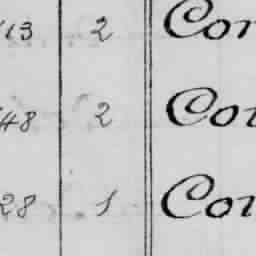 13 2 Cor
48 2 Cor
28 1 Cor